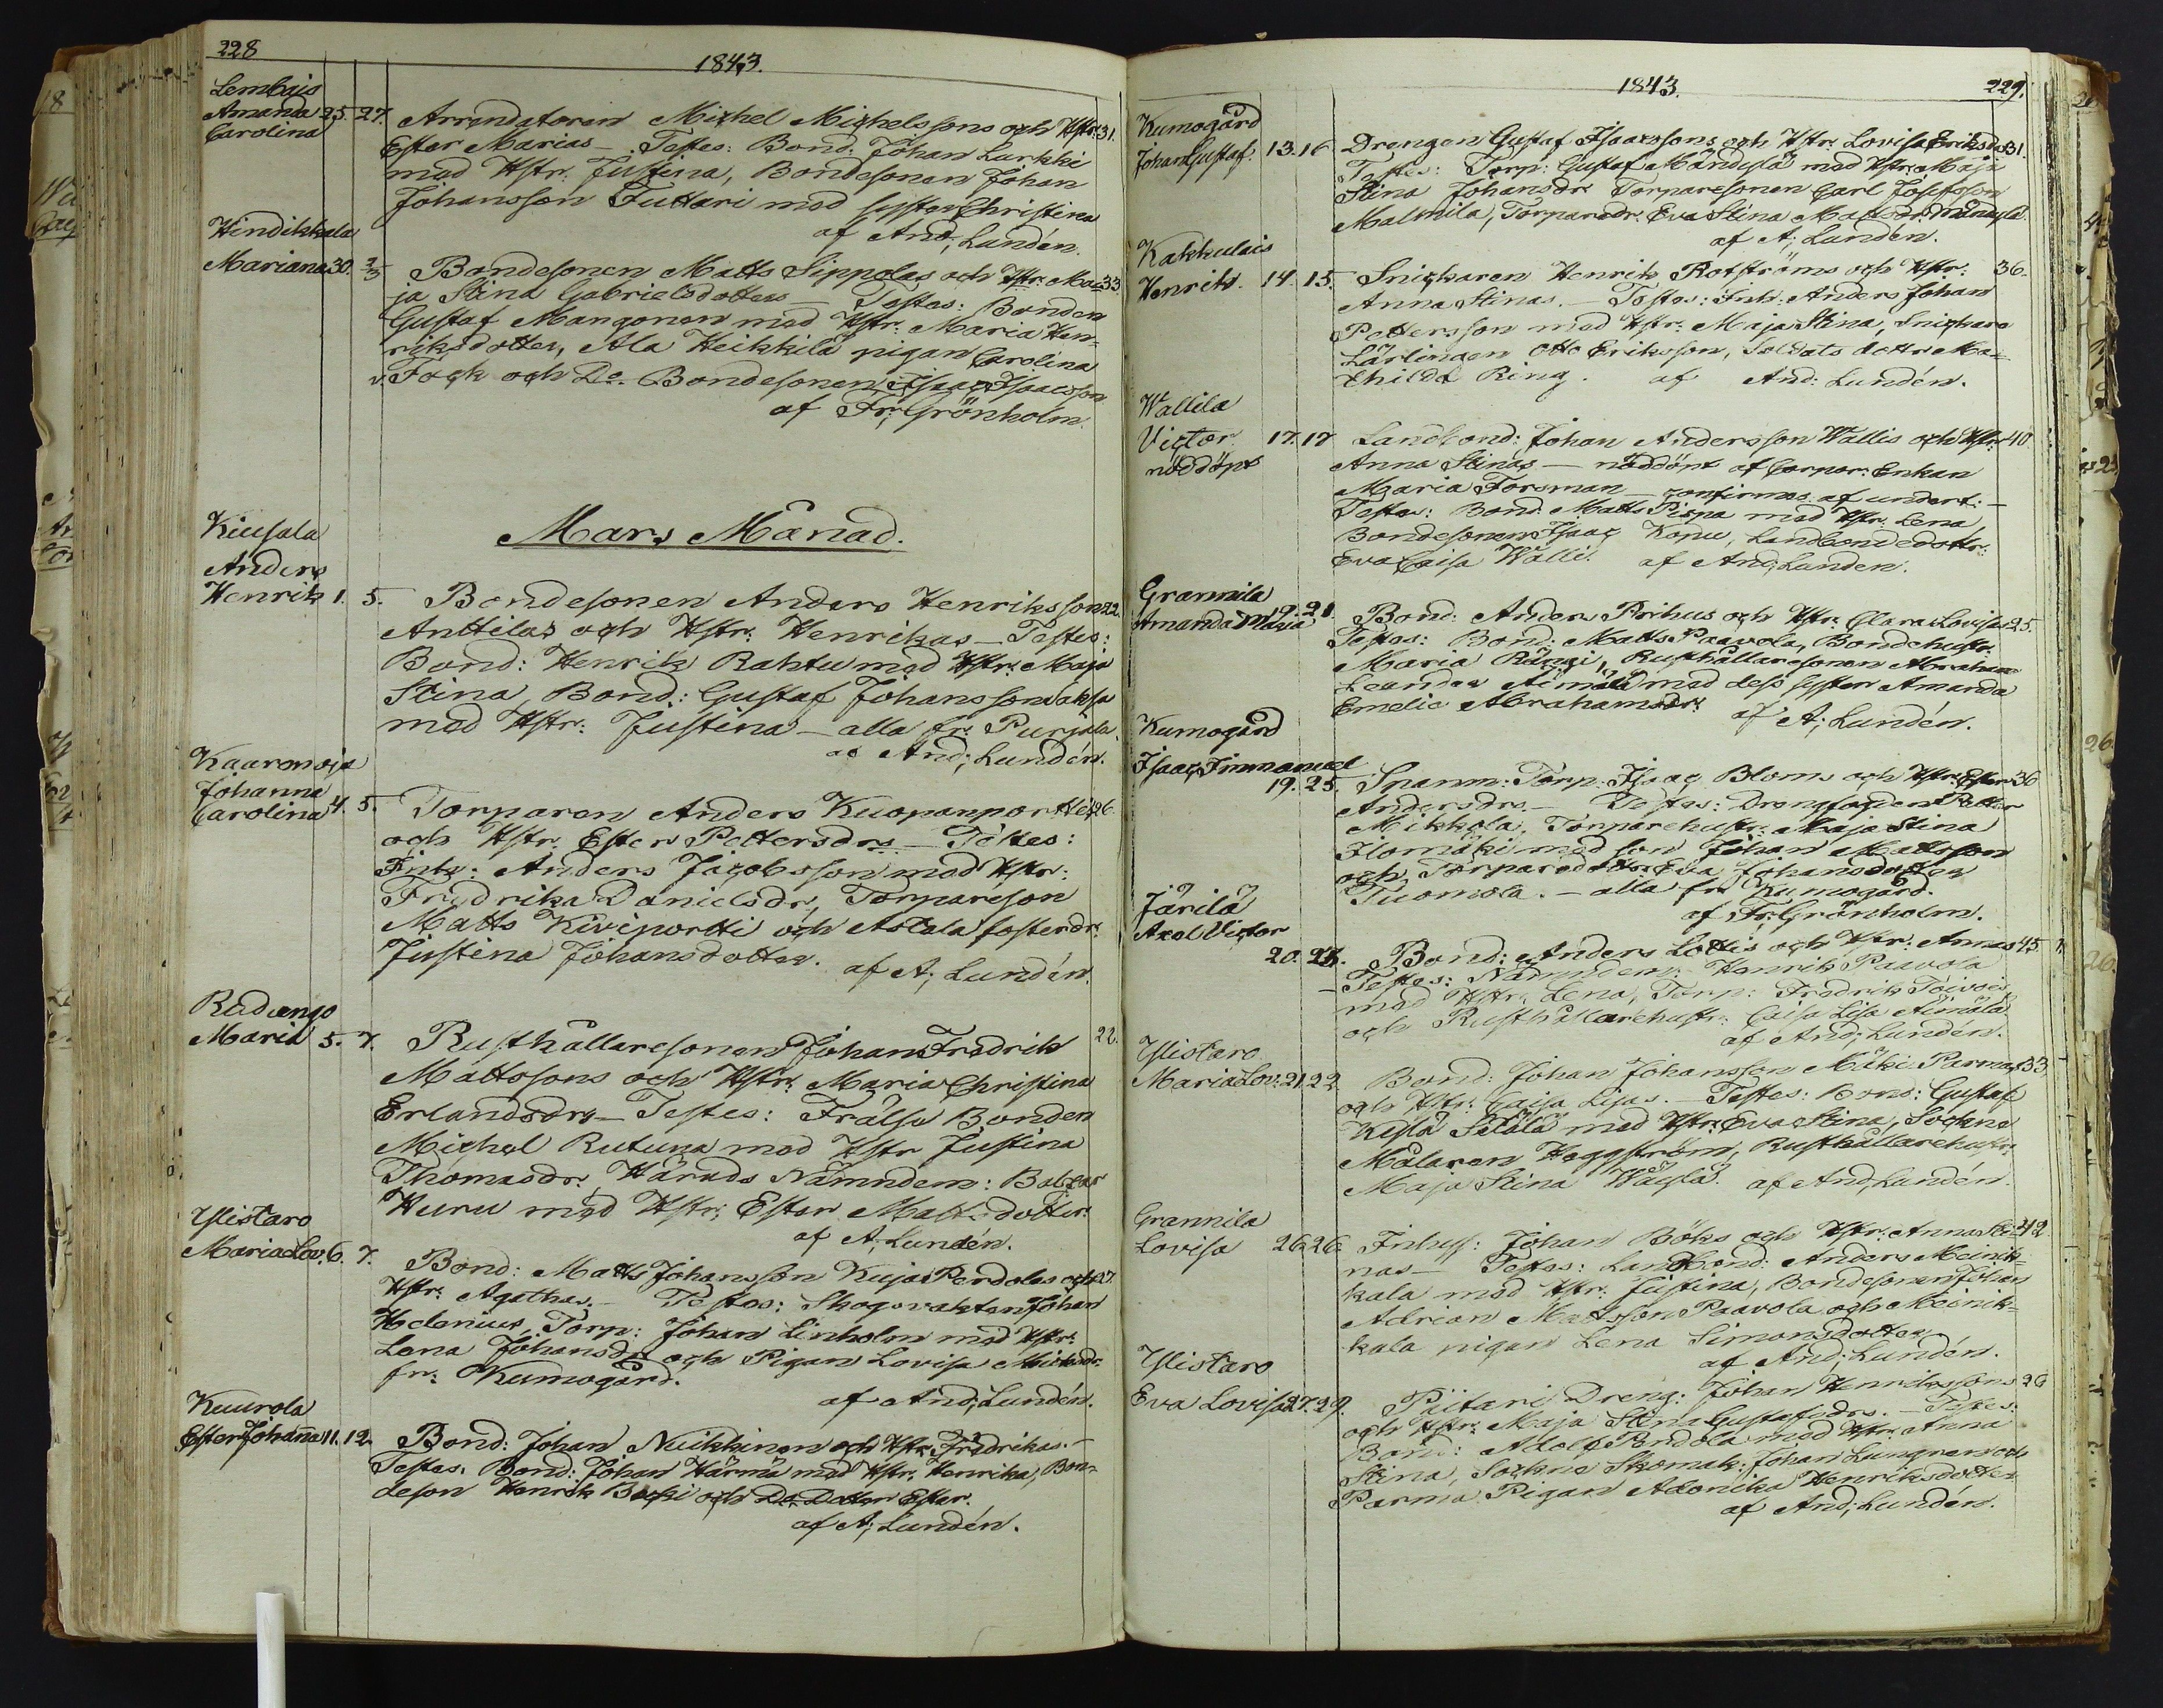 228
1843.
Lembois
Amanda 25. 27. Arrendatoren Michel Michelssons och Hstr. 31.
Carolina
Ester Marias — Testes: Bond. Johan Lurkki
med Hstr. Justina, Bondesonen Johan
Johansson Tuttari med syster Christina
af And; Lundén.
Hindikkala
Mariana 30. 2/3 Bondesonen Matts Sippolas och Hstr. Ma= 33.
ja Stina Gabrielsdotters — Testes: Bonden
Gustaf Mangonen med Hstr. Maria Hen-
riksdotter, Ala Heikkilä pigan Carolina
Fock och Do. Bondesonen Isaac Isaacsson
af Fr; Grönholm.
Mars Månad.
Kiusala
Anders
Henrik 1. 5. Bondesonen Anders Henriksson 22.
Anttilas och Hstr. Henrikas — Testes:
Bond: Henrik Rahtu med Hstr. Maja
Stina, Bond: Gustaf Johansson
med Hstr: Justina — alla fr. Purjala.
af And; Lundén.
Kaaronoja
Johanna
Carolina 4. 5. Torparen Anders Kuopanportti 26.
och Hstr. Ester Pettersdrs — Testes:
Inh: Anders Jacobsson med Hstr:
Fredrika Danielsdr, Torpareson
Matts Kiviportti och Astala fosterdr.
Justina Johansdotter. af A; Lundén.
Rudango
Maria 5. 7. Rusthållaresonen Johan Fredrik 22.
Mattssons och Hstr. Maria Christina
Erlandsdrs — Testes: Frälse Bonden
Michel Rutuna med Hstr Justina
Thomasdr. Härads Nämndem: Baltzar
Huru med Hstr; Ester Mattsdotter.
af A; Lundén.
Ylistaro
Maria Lov. 6. 7. Bond: Matts Johansson Kuja Perdolas och 27.
Hstr. Agathas. — Testes: Skogvaktn Johan
Helenius, Torp: Johan Linholm med Hstr:
Lena Johansdr och Pigan Lovisa
fr: Kumogård.
af And; Lundén.
Kuurola
Ester Johana 11. 12. Bond: Johan Nuikkinen och Hstr. Fredrikas. —
Testes. Bond: Johan Härmä med Hstr. Henrika, Bon-
deson Henrik och Do. Dotter Ester.
af A; Lundén.
1843.
229.
Kumogård
Johan Gustaf. 13. 16 Drengen Gustaf Isaacssons och Hstr. Lovisa Eriksds 31.
Testes: Torp: Gustaf Mändyla med Hstr. Maja
Stina Johansdr. Torparesonen Carl Josefsson
Malmila, Torparedr. Eva Stina Mattsdr. Mändylä.
af A; Lundén.
Kakkulais
Henrik. 14. 15. Snickaren Henrik Rotströms och Hstr: 36.
Anna Stinas. — Testes: Inh. Anders Johan
Pettersson med Hstr. Maja Stina, Snickare
Lärlingen Otto Eriksson, Soldats dottr Ma-
thilda Ring. af And: Lundén.
Wallila
Victor 17. 17 Landbond: Johan Andersson Wallis och Hstr. 40.
nöddöpt
Anna Stinas — nöddöpt af Corpor: Enkan
Maria Forsman — confirmes af undert: —
Testes: Bond. Matts Pispa med Hstr. Lena,
Bondesonen Isaac Kopu, Landbondedottr:
Eva Caisa Walli. af And; Lunden.
Grannila
Amanda Maria 19. 21. Bond: Anders Prihus och Hstr. Clara Lovisas 25.
Testes: Bond: Matts Paavola, Bondehustr.
Maria Rängi, Rusthållaresonen Abraham
Leander Äimälä med dess syster Amanda
Emelie Abrahamsdr. af A; Lundén.
Kumogård
Isaac Immanuel
19. 25. Spanm: Torp. Isaac Bloms och Hstr: Ester 36
Andersdrs. — Testes: Drengfogden Petter
Mikkola, Torparehustr. Maja Stina
Ilomäki med son Johan Mattsson
och Torparedotter Eva Johansdotter
Tuomola. — alla fr Kumogård.
af Fr; Grönholm.
Järilä
Axel Victor
20. 23. Bond: Anders Lottis och Hstr. Annas 45.
— Testes: Nämndem: Henrik Paavola
med Hstr. Lena, Torp: Fredrik Toivois,
och Rusthållarehustr: Caisa Lisa Äimälä
af And; Lundén.
Ylistaro
Maria Lov: 21. 22 Bond: Johan Johansson Mäki Parmas 33.
och Hstr. Caisa Lisas. — Testes: Bond: Gustaf
Kislä Sätälä med Hstr. Eva Stina, Sockne
Målaren Heggström, Rusthållarehustr.
Maja Stina Wäylä. af And; Lundén.
Grannila
Lovisa 26. 26. Inhys: Johan Böks och Hstr. Anna Sti- 42.
nas — Testes: Landbond: Anders Meinik-
kala med Hstr: Justina, Bondesonen Johan
Adrian Mattsson Paavola och Meinik-
kala pigan Lena Simonsdotter
af And; Lundén.
Ylistaro
Eva Lovisa 27. 29. Piitari Dreng: Johan Henrikssons 26
och Hstr. Maja Stina Gustafsdrs. — Testes:
Bond: Adolf Perdola med Hstr. Anna
Stina, Sockne Skomak: Johan Lungren och
Parma Pigan Adonika Henriksdotter
af And; Lundén.